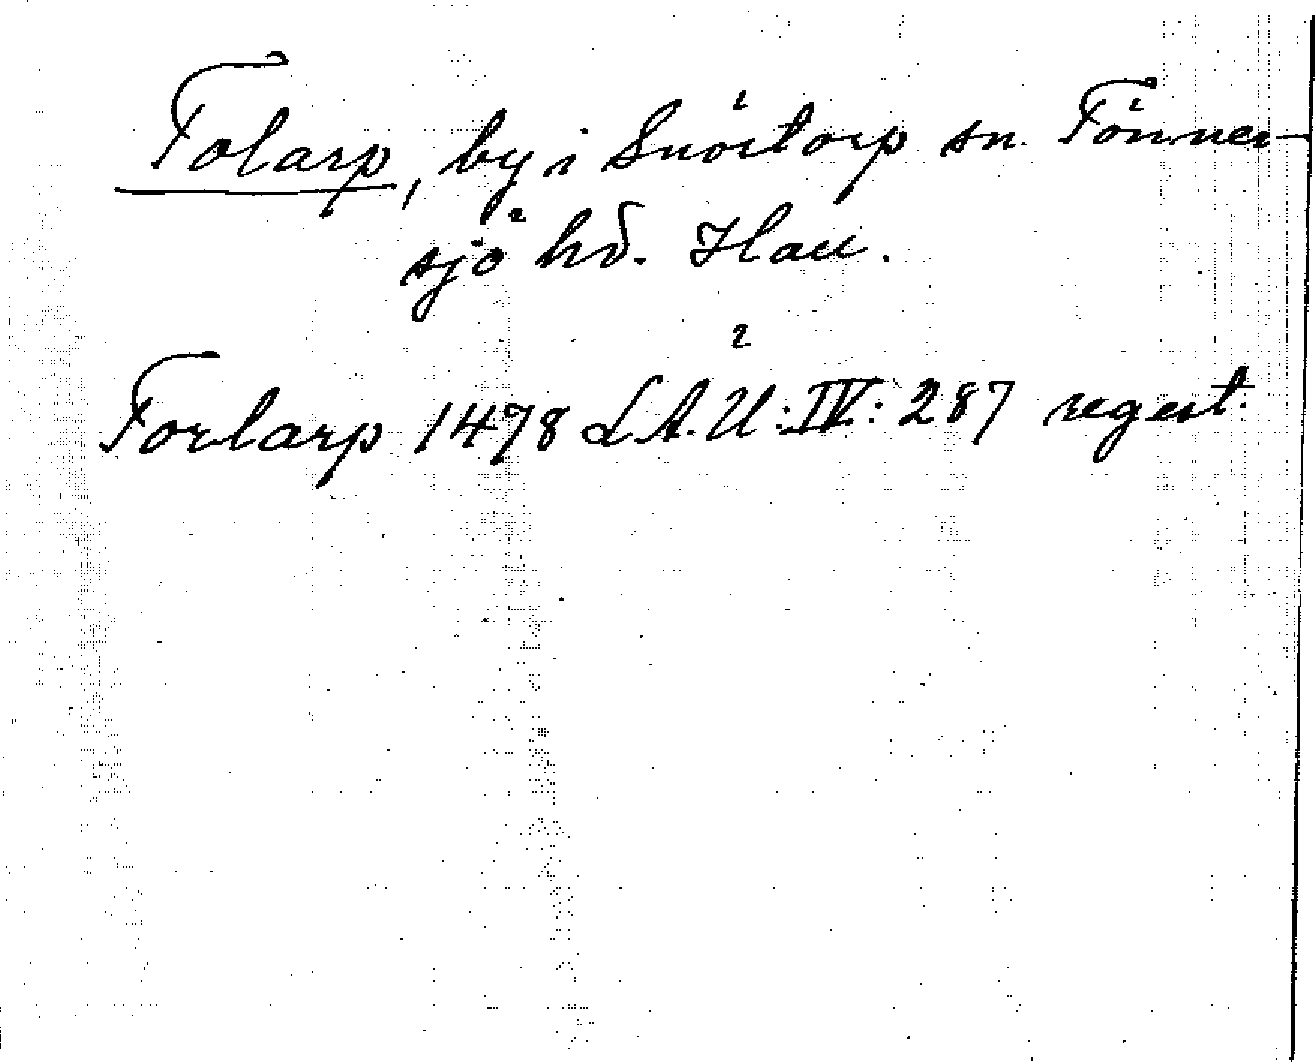 Tolarp, by i Snöstorp sn. Tönner-
sjö hd. Hall.
Torlarp 1478 LÄU:IV: 287 regest.